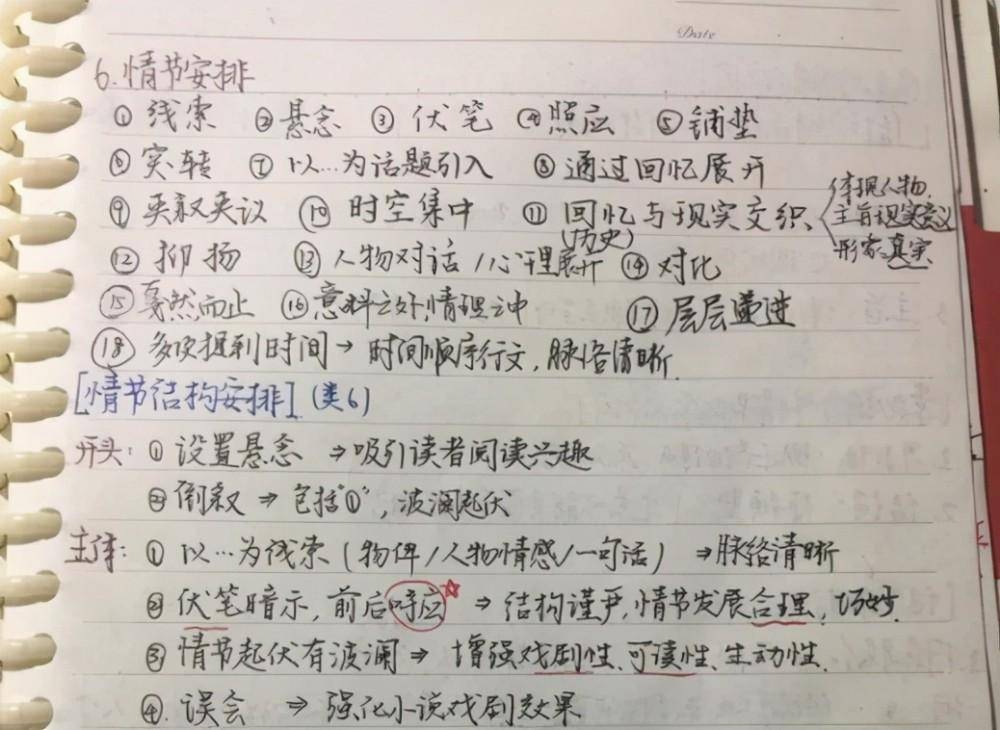 Date
6.情节安排
①线索 ②悬念 ③伏笔 ④照应 ⑤铺垫
⑥突转 ⑦以…为话题引入 ⑧通过回忆展开
⑨夹叙夹议 ⑩时空集中 ⑪回忆与现实交织
(历史)
体现人物
主旨现实意义
形象真实
⑫抑扬 ⑬人物对话/心理展开 ⑭对比
⑮戛然而止 ⑯意料之外,情理之中 ⑰层层递进
⑱多次提到时间→时间顺序行文,脉络清晰.
[情节结构安排](类6)
开头:①设置悬念→吸引读者阅读兴趣
②倒叙→包括"①",波澜起伏
主体:①以…为线索(物件/人物情感/一句话)→脉络清晰
②伏笔暗示,前后呼应☆→结构谨严,情节发展合理,巧妙.
③情节起伏有波澜→增强戏剧性、可读性、生动性.
④.误会→强化小说戏剧效果